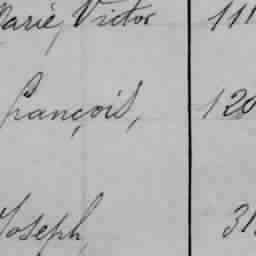 Marie, Victor 111
François, 120
Joseph 31